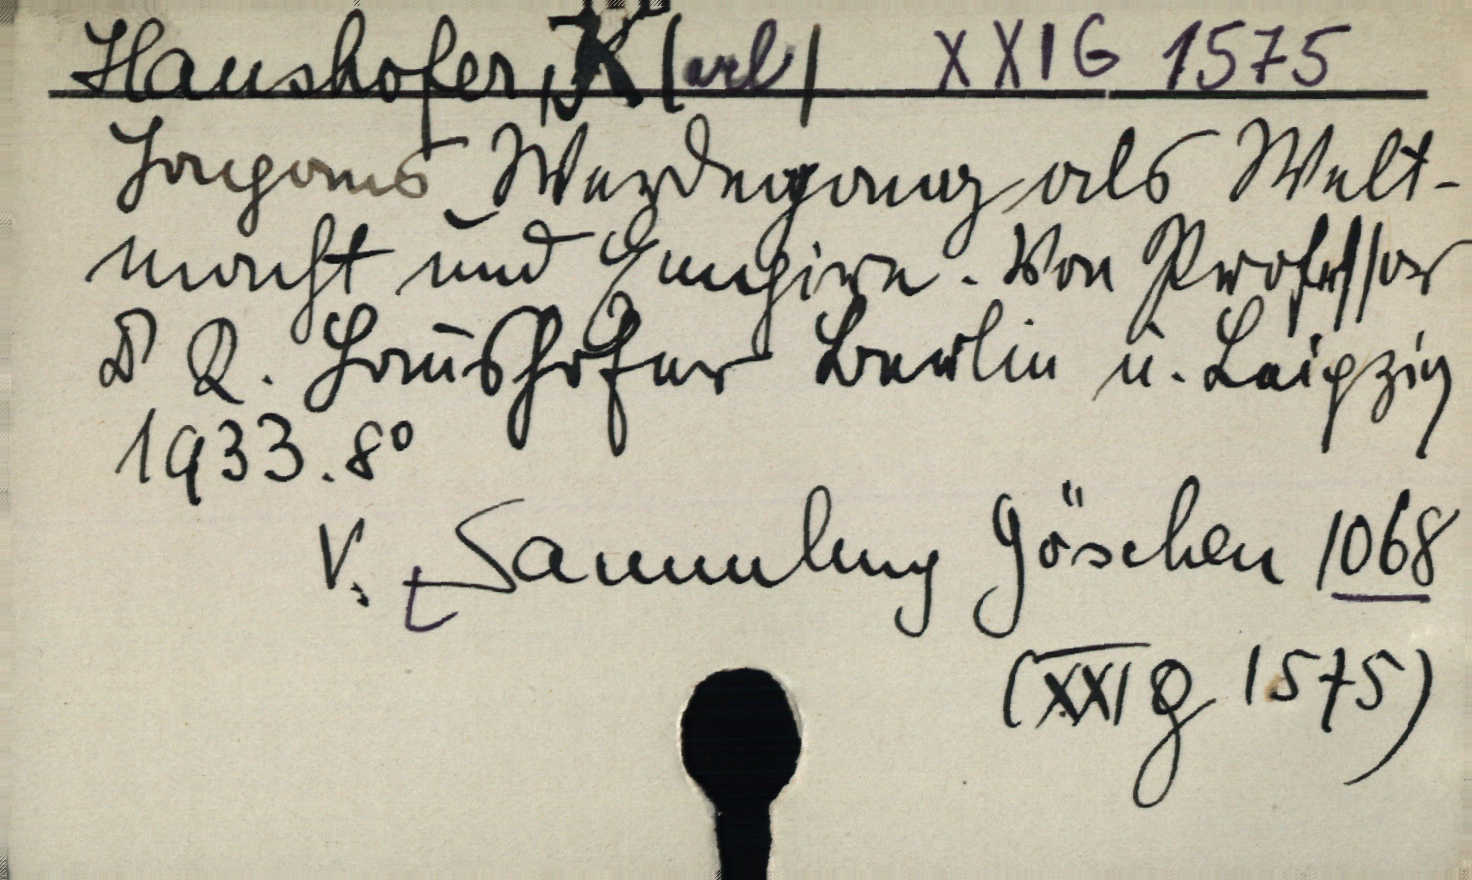 Haushofer, K(arl) XXIG 1575
Japans Werdegang als Welt-
macht und Empire. Von Professor
Dr K. Haushofer Berlin u. Leipzig
1933. 8°
V. Sammlung Göschen 1068
(XXI g 1575)